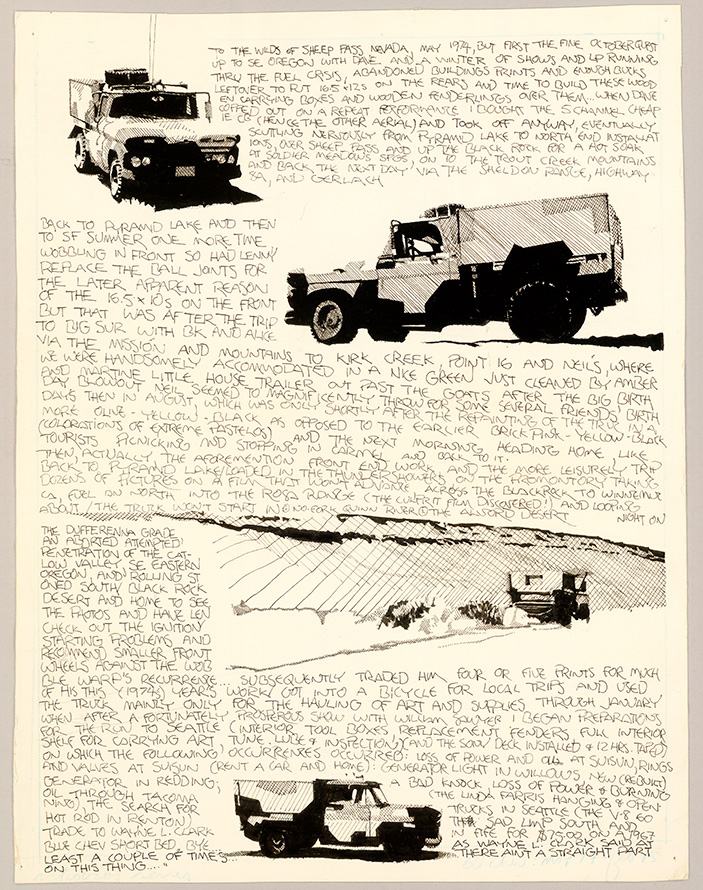 TO THE WILDS OF SHEEP PASS NEVADA, MAY 1974, BUT FIRST THE FINE OCTOBER QUEST
UP TO SE OREGON WITH DAVE AND A WINTER OF SHOWS AND UP RUNNING
THRU THE FUEL CRISIS, ABANDONED BUILDINGS PRINTS AND ENOUGH BUCKS
LEFTOVER TO PUT 16.5 x 12s ON THE REARS AND TIME TO BUILD THESE WOOD
EN CARRYING BOXES AND WOODEN FENDERLINGS OVER THEM... WHEN DAVE
COPPED OUT ON A REPEAT PERFORMANCE I BOUGHT THE 5 CHANNEL CHEAP
IE CB (HENCE THE OTHER AERIAL) AND TOOK OFF ANYWAY, EVENTUALLY
SCUTLING NERVOUSLY FROM PYRAMID LAKE TO NORTH END INSTALLAT
IONS, OVER SHEEP PASS AND UP THE BLACK ROCK FOR A HOT SOAK
AT SOLDIER MEADOWS SPGS, ON TO THE TROUT CREEK MOUNTAINS
AND BACK THE NEXT DAY VIA THE SHELDON RANGE, HIGHWAY
8A, AND GERLACH
BACK TO PYRAMID LAKE AND THEN
TO SF SUMMER ONE MORE TIME
WOBBLING IN FRONT SO HAD LENNY
REPLACE THE BALL JOINTS FOR
THE LATER APPARENT REASON
OF THE 16.5 x 10s ON THE FRONT
BUT THAT WAS AFTER THE TRIP
TO BIG SUR WITH BK AND ALICE
VIA THE MISSION AND MOUNTAINS TO KIRK CREEK, POINT 16 AND NEIL'S, WHERE
WE WERE HANDSOMELY ACCOMMODATED IN A NICE GREEN JUST CLEANED BY AMBER
AND MARTINE LITTLE HOUSE TRAILER OUT PAST THE GOATS AFTER THE BIG BIRTH
DAY BLOWOUT NEIL SEEMED TO MAGNIFICENTLY THROW FOR SOME SEVERAL FRIENDS' BIRTH
DAYS THEN IN AUGUST, WHICH WAS ONLY SHORTLY AFTER THE REPAINTING OF THE TRUCK IN A
MORE OLIVE - YELLOW - BLACK AS OPPOSED TO THE EARLIER BRICK PINK - YELLOW - BLACK
(COLORATIONS OF EXTREME PASTELOS) AND THE NEXT MORNING, HEADING HOME, LIKE
TOURISTS PICNICKING AND STOPPING IN CARMEL AND BACK TO IT.
THEN, ACTUALLY, THE AFOREMENTION FRONT END WORK AND THE MORE LEISURELY TRIP
BACK TO PYRAMID LAKE LOADED IN THE THUNDERSHOWERS ON THE PROMONTORY TAKING
DOZENS OF PICTURES ON A FILM THAT WON'T ADVANCE ACROSS THE BLACKROCK TO WINNEMUC
CA, FUEL ON NORTH INTO THE ROSA RANGE (THE CULPRIT FILM DISCOVERED!) AND LOOPING
ABOUT / THE TRUCK WON'T START IN @ NO. FORK QUINN RIVER @ THE ALVORD DESERT NIGHT ON
THE DUFFERENNA GRADE
AN ABORTED ATTEMPTED
PENETRATION OF THE CAT-
LOW VALLEY, SE EASTERN
OREGON, AND ROLLING ST
ONED SOUTH BLACK ROCK
DESERT AND HOME TO SEE
THE PHOTOS AND HAVE LEN
CHECK OUT THE IGNITION
STARTING PROBLEMS AND
RECOMMEND SMALLER FRONT
WHEELS AGAINST THE WOB
BLE WARP'S RECURRENSE... SUBSEQUENTLY TRADED HIM FOUR OR FIVE PRINTS FOR MUCH
OF HIS THIS (1974s) YEAR'S WORK, GOT INTO A BICYCLE FOR LOCAL TRIPS AND USED
THE TRUCK MAINLY ONLY FOR THE HAULING OF ART AND SUPPLIES THROUGH JANUARY
WHEN AFTER A FORTUNATELY PROSPEROUS SHOW WITH WILLIAM SAWYER I BEGAN PREPARATIONS
FOR THE RUN TO SEATTLE (INTERIOR TOOL BOXES REPLACEMENT FENDERS FULL INTERIOR
SHELF FOR CARRYING ART, TUNE LUBE & INSPECTION) (AND THE SONY DECK INSTALLED & 12 HRS. TAPED)
ON WHICH THE FOLLOWING OCCURRENCES OCCURRED: LOSS OF POWER AND OIL AT SUISUN, RINGS
AND VALVES AT SUISUN (RENT A CAR AND HOME): GENERATOR LIGHT IN WILLOWS, NEW (REBUILT)
GENERATOR IN REDDING; A BAD KNOCK, LOSS OF POWER & BURNING
OIL THROUGH TACOMA (THE LINDA FARRIS HANGING & OPEN
NING), THE SEARCH FOR TRUCKS IN SEATTLE (THE V-8 60
HOT ROD IN RENTON) THE SAD LIMP SOUTH AND
TRADE TO WAYNE L. CLARK IN FIFE FOR $75.00 ON A 1967
BLUE CHEV SHORT BED, BYE AS WAYNE L. CLARK SAID AT
LEAST A COUPLE OF TIME'S... "THERE AIN'T A STRAIGHT PART
ON THIS THING....."